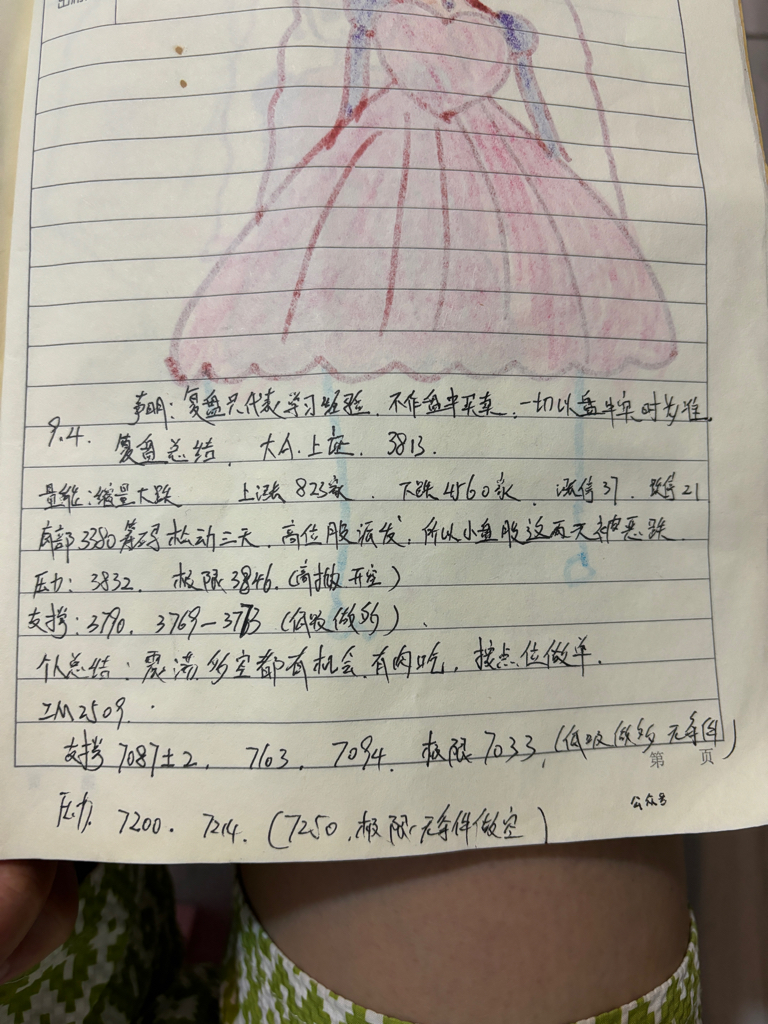 声明：复盘只代表学习经验，不作盘中买卖，一切以盘中实时为准。
9.4. 复盘总结，大A.上证. 3813.
量能：缩量大跌 上涨823家. 下跌4560家. 涨停37. 跌停21
局部3380筹码松动三天，高位股派发，所以小盘股这两天被恶跌.
压力：3832. 极限3846.(高抛开空)
支撑：3790. 3769-3773 (低吸做多).
个人总结：震荡多空都有机会.有肉吃，按点位做单.
IM2509.
支撑7087±2. 7163. 7094. 极限7033.(低吸做多 无条件)
第 页
压力. 7200. 7214. (7250.极限.无条件做空)
公众号